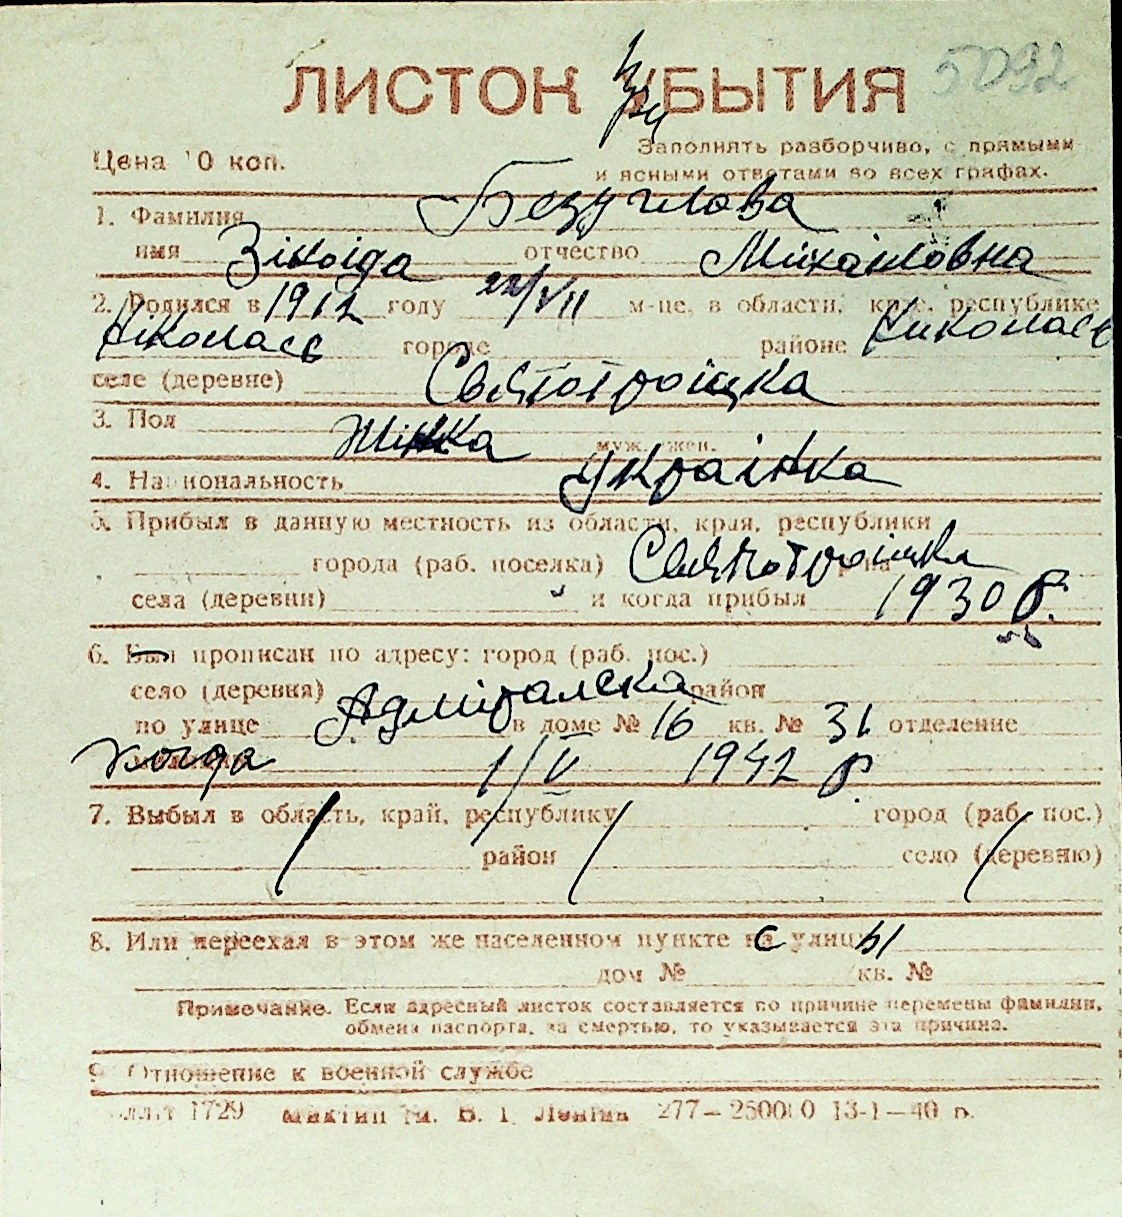 ЛИСТОК УБЫТИЯ 5092
Цена 10 коп. Заполнять разборчиво, с прямыми
и ясными ответами во всех графах.
1. Фамилия Безуглова
имя Зінаіда отчество Михайловна
2. Родился в 1912 году VII м-це, в области, крае, республике
Ніколаев городе районе Николаев
селе (деревне) Святотроіцка
3. Пол Жінка муж. жен.
4. Национальность Українка
5. Прибыл в данную местность из области, края, республики
города (раб. поселка) Святотроіцка
села (деревни) и когда прибыл 1930 р.
6. Был прописан по адресу: город (раб. пос.)
село (деревня) район
по улице Адміралска в доме № 16 кв. № 31 отделение
когда 1/V 1942 р
7. Выбыл в область, край, республику город (раб. пос.)
район село (деревню)
8. Или переехал в этом же населенном пункте с улицы
дом № кв. №
Примечание. Если адресный листок составляется по причине перемены фамилии,
обмена паспорта, за смертью, то указывается эта причина.
9. Отношение к военной службе
1729 им. В. І. Леніна 277—250000 13-1—40 р.